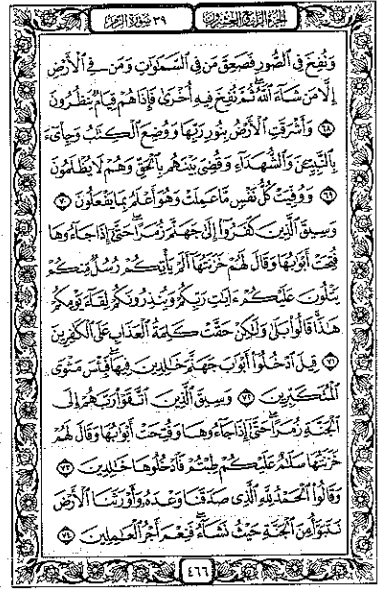 الجزء الرابع والعشرون
٣٩ سورة الزمر
وَنُفِخَ فِي الصُّورِ فَصَعِقَ مَن فِي السَّمَٰوَٰتِ وَمَن فِي الْأَرْضِ
إِلَّا مَن شَاءَ اللَّهُ ثُمَّ نُفِخَ فِيهِ أُخْرَىٰ فَإِذَا هُمْ قِيَامٌ يَنظُرُونَ
٦٨ وَأَشْرَقَتِ الْأَرْضُ بِنُورِ رَبِّهَا وَوُضِعَ الْكِتَٰبُ وَجِاْيٓءَ
بِالنَّبِيِّـۧنَ وَالشُّهَدَاءِ وَقُضِيَ بَيْنَهُم بِالْحَقِّ وَهُمْ لَا يُظْلَمُونَ
٦٩ وَوُفِّيَتْ كُلُّ نَفْسٍ مَّا عَمِلَتْ وَهُوَ أَعْلَمُ بِمَا يَفْعَلُونَ ٧٠
وَسِيقَ الَّذِينَ كَفَرُوا إِلَىٰ جَهَنَّمَ زُمَرًا حَتَّىٰ إِذَا جَاءُوهَا
فُتِحَتْ أَبْوَٰبُهَا وَقَالَ لَهُمْ خَزَنَتُهَا أَلَمْ يَأْتِكُمْ رُسُلٌ مِّنكُمْ
يَتْلُونَ عَلَيْكُمْ ءَايَٰتِ رَبِّكُمْ وَيُنذِرُونَكُمْ لِقَاءَ يَوْمِكُمْ
هَٰذَا قَالُوا بَلَىٰ وَلَٰكِنْ حَقَّتْ كَلِمَةُ الْعَذَابِ عَلَى الْكَٰفِرِينَ
٧١ قِيلَ ادْخُلُوا أَبْوَٰبَ جَهَنَّمَ خَٰلِدِينَ فِيهَا فَبِئْسَ مَثْوَى
الْمُتَكَبِّرِينَ ٧٢ وَسِيقَ الَّذِينَ اتَّقَوْا رَبَّهُمْ إِلَى
الْجَنَّةِ زُمَرًا حَتَّىٰ إِذَا جَاءُوهَا وَفُتِحَتْ أَبْوَٰبُهَا وَقَالَ لَهُمْ
خَزَنَتُهَا سَلَٰمٌ عَلَيْكُمْ طِبْتُمْ فَادْخُلُوهَا خَٰلِدِينَ ٧٣
وَقَالُوا الْحَمْدُ لِلَّهِ الَّذِي صَدَقَنَا وَعْدَهُ وَأَوْرَثَنَا الْأَرْضَ
نَتَبَوَّأُ مِنَ الْجَنَّةِ حَيْثُ نَشَاءُ فَنِعْمَ أَجْرُ الْعَٰمِلِينَ ٧٤
٤٦٦